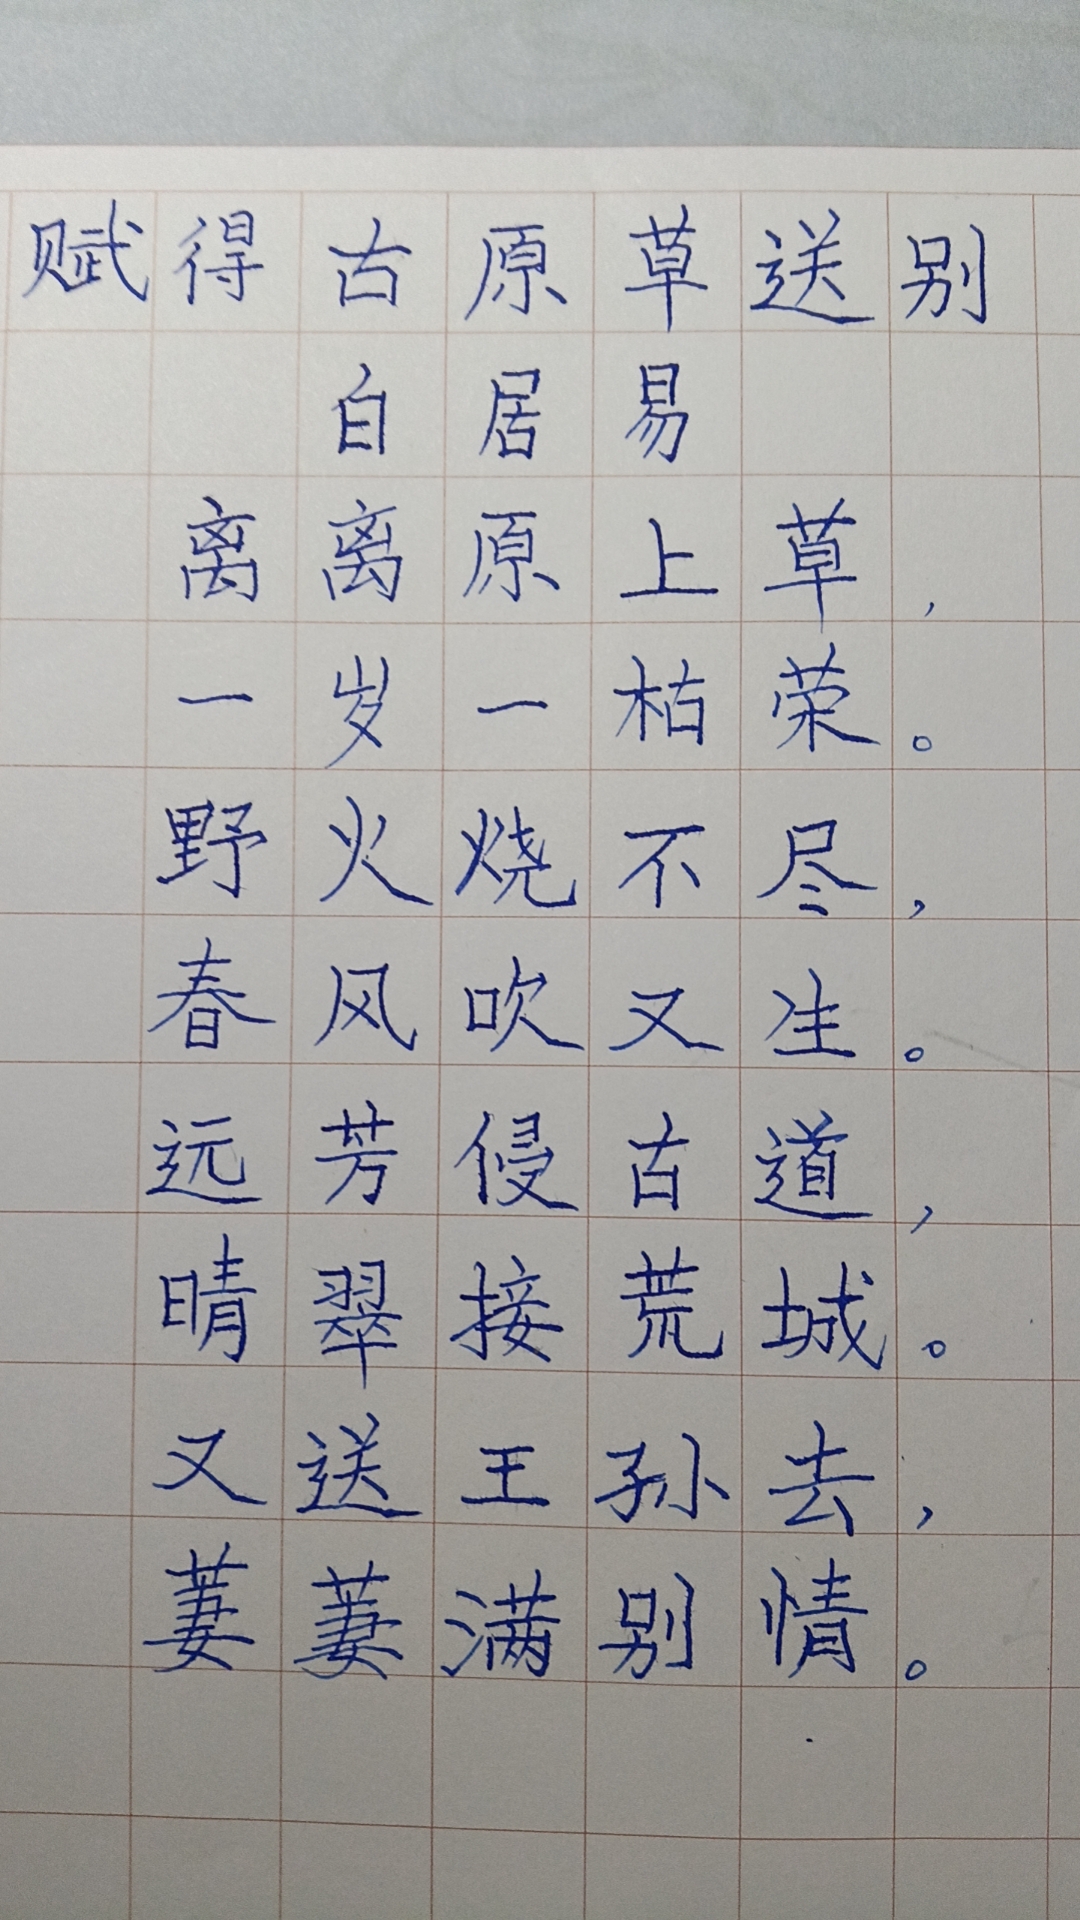 赋得古原草送别
白居易
离离原上草,
一岁一枯荣。
野火烧不尽,
春风吹又生。
远芳侵古道,
晴翠接荒城。
又送王孙去,
萋萋满别情。